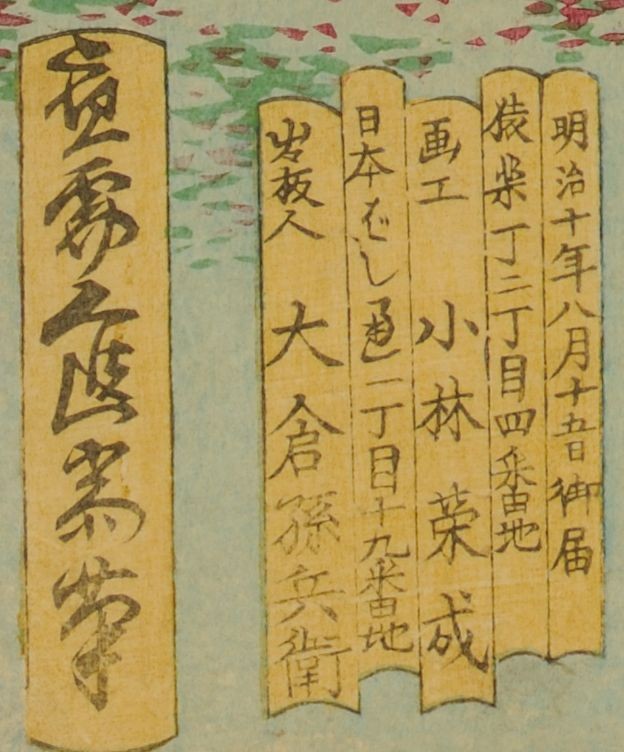 明治十年八月十五日御届
猿楽丁二丁目四番地
画工 小林荣成
日本ばし通一丁目十九番地
出板人 大倉孫兵衛
齋筆